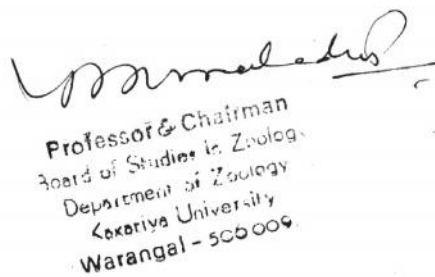 Professor & Chairman
Board of Studies in Zoology
Department of Zoology
Kakatiya University
Warangal - 506 009.